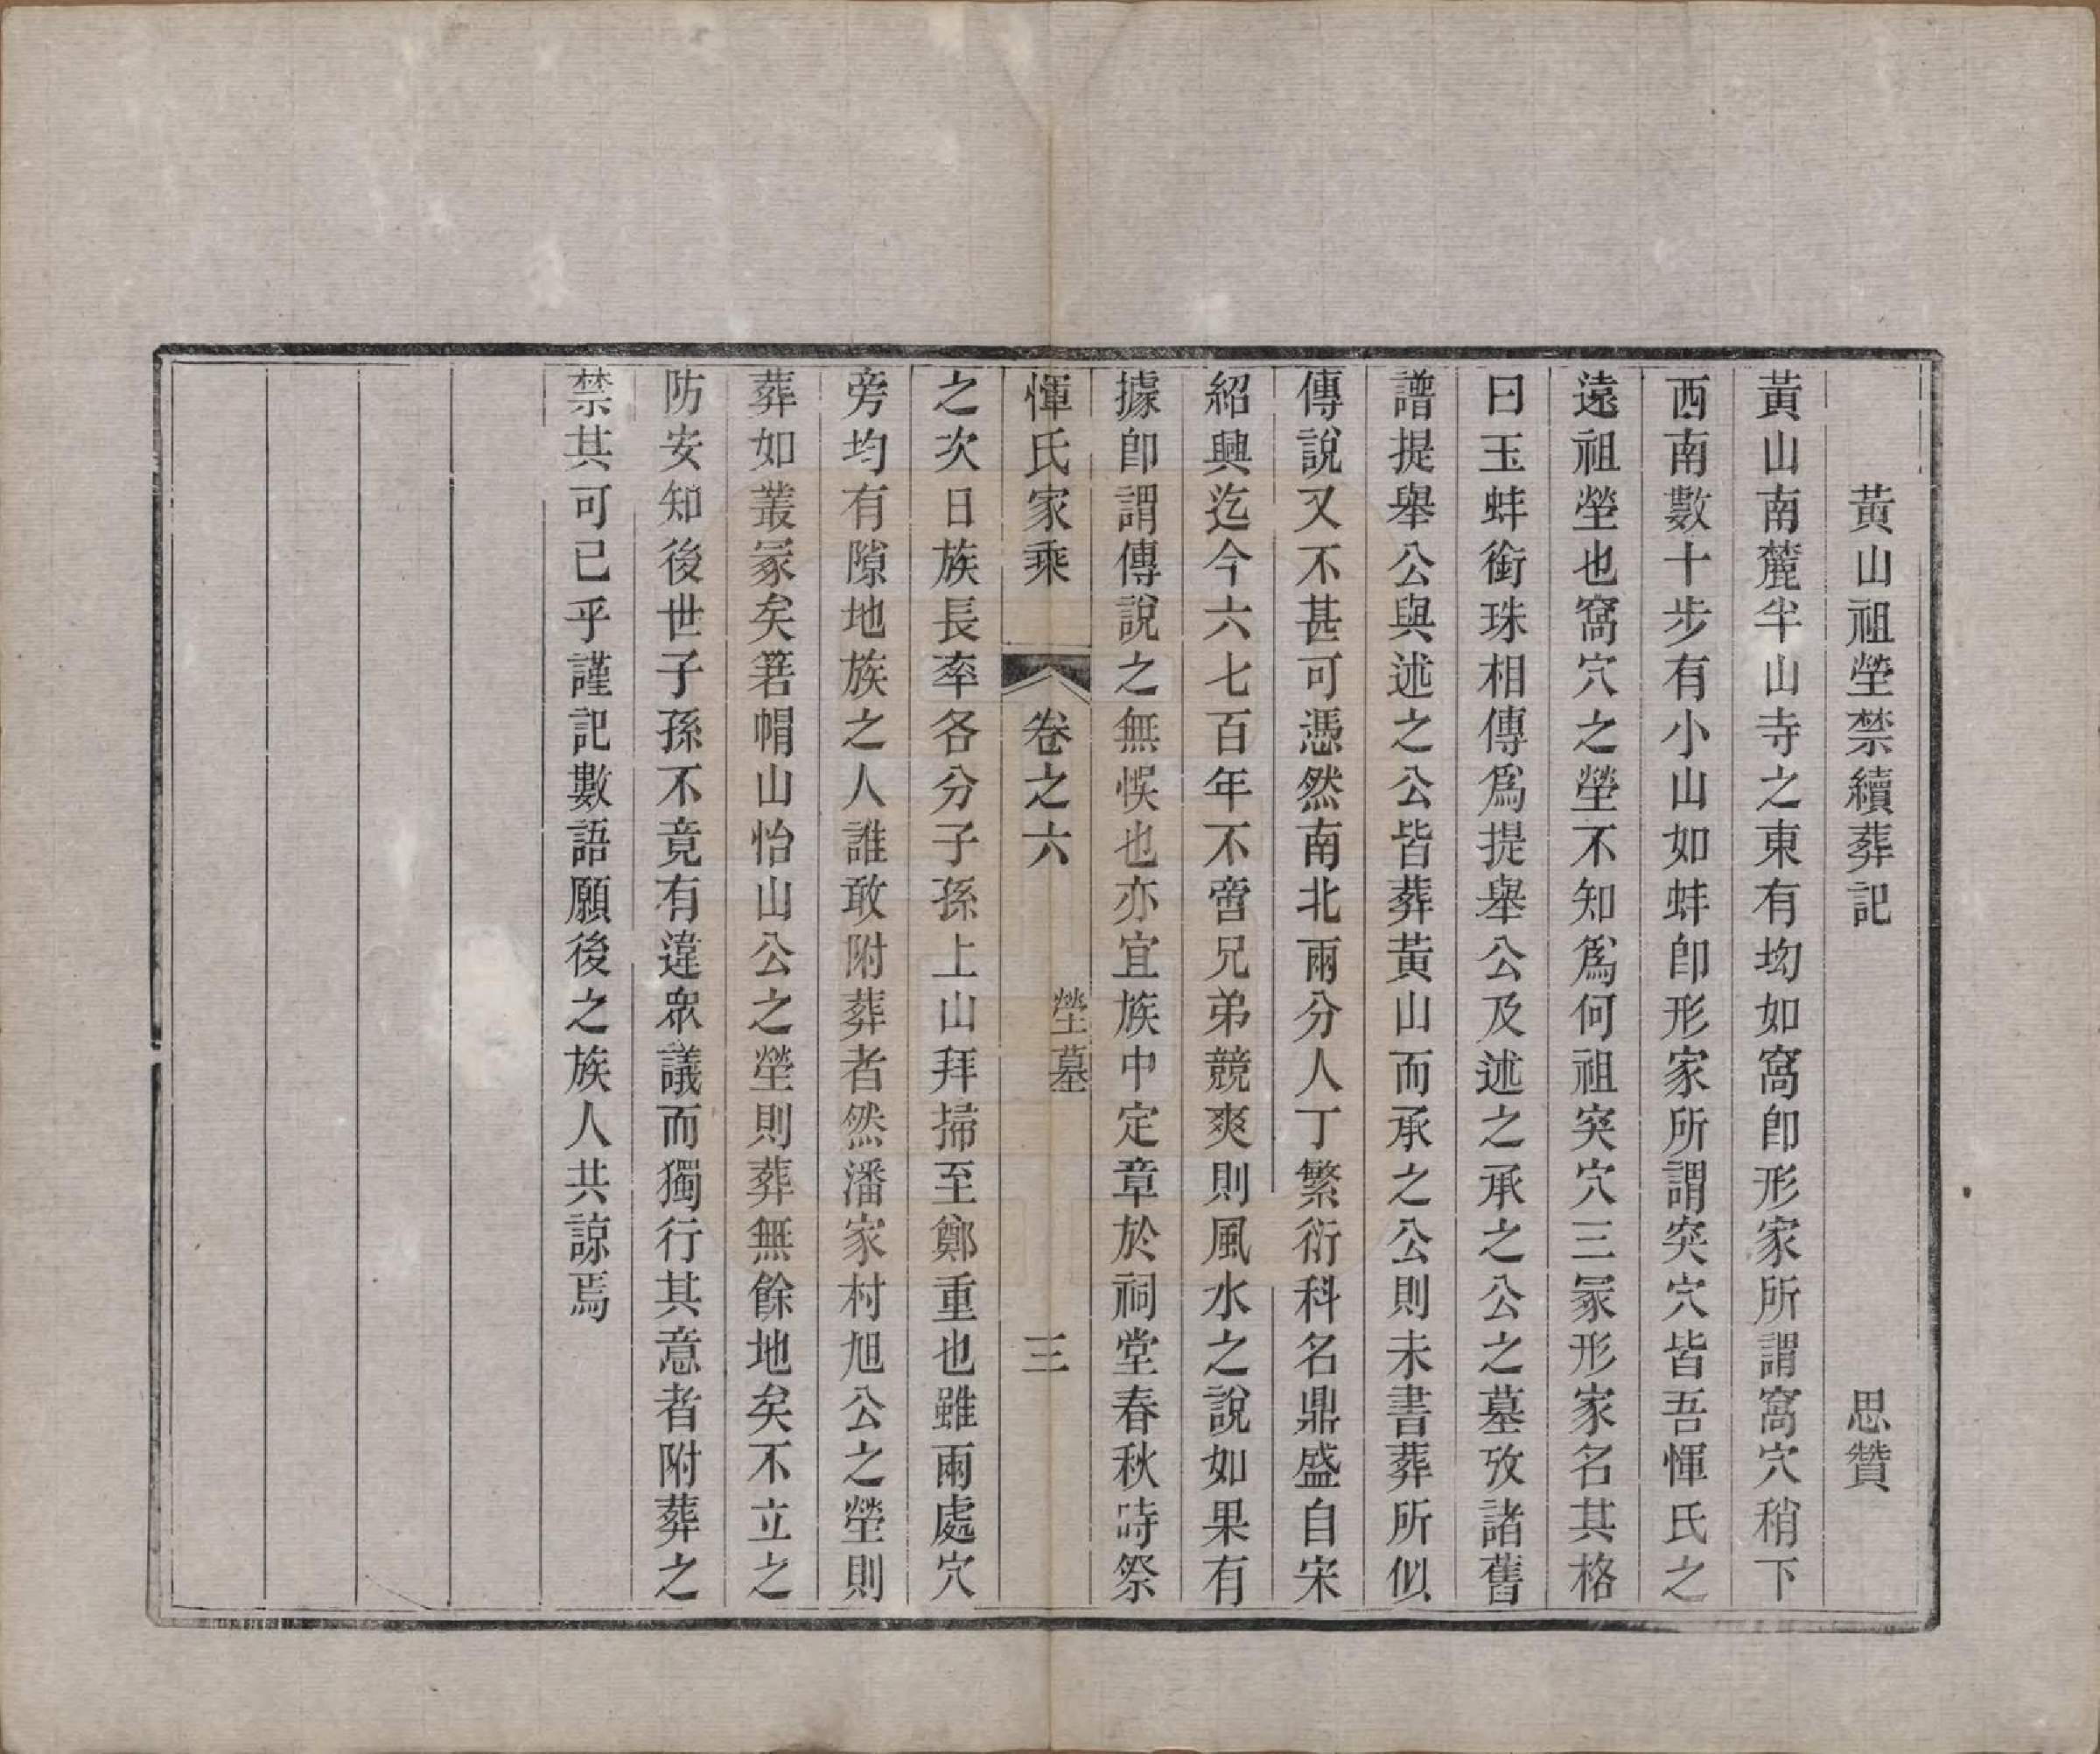 黃山祖塋禁續葬記　思贊
黃山南麓半山寺之東有坳如窩卽形家所謂窩穴稍下
西南數十步有小山如蚌卽形家所謂突穴皆吾惲氏之
遠祖塋也窩穴之塋不知爲何祖突穴三冢形家名其格
曰玉蚌銜珠相傳爲提舉公及述之承之公之墓攷諸舊
譜提舉公與述之公皆葬黃山而承之公則未書葬所似
傳說又不甚可憑然南北兩分人丁繁衍科名鼎盛自宋
紹興迄今六七百年不啻兄弟競爽則風水之說如果有
據卽謂傳說之無悞也亦宜族中定章於祠堂春秋時祭
惲氏家乘　卷之六　塋墓　三
之次日族長率各分子孫上山拜掃至鄭重也雖兩處穴
旁均有隙地族之人誰敢附葬者然潘家村旭公之塋則
葬如叢冢矣箬帽山怡山公之塋則葬無餘地矣不立之
防安知後世子孫不竟有違眾議而獨行其意者附葬之
禁其可已乎謹記數語願後之族人共諒焉